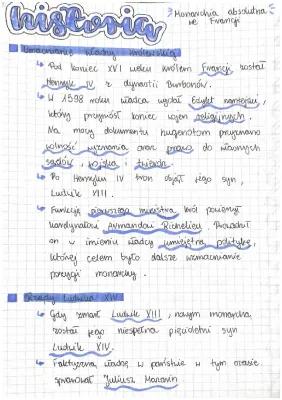 historia
Monarchia absolutna
we Francji
Umacnianie władzy królewskiej
Pod koniec XVI wieku królem Francji, został
Henryk IV z dynastii Burbonów.
W 1598 roku władca wydał Edykt nantejski,
który przyniósł koniec wojen religijnych.
Na mocy dokumentu hugenotom przyznano
wolność wyznania oraz prawo do własnych
sądów, wojska, twierdz.
Po Henryku IV tron objął jego syn,
Ludwik XIII.
Funkcję pierwszego ministra król powierzył
kardynałowi Armandowi Richelieu. Prowadził
on w imieniu władcy umiejętną politykę,
której celem było dalsze wzmacnianie
pozycji monarchy.
Rządy Ludwika XIV
Gdy zmarł Ludwik XIII, nowym monarchą
został jego niespełna pięcioletni syn
Ludwik XIV.
Faktyczną władzę w państwie w tym czasie
sprawował Juliusz Mazarin